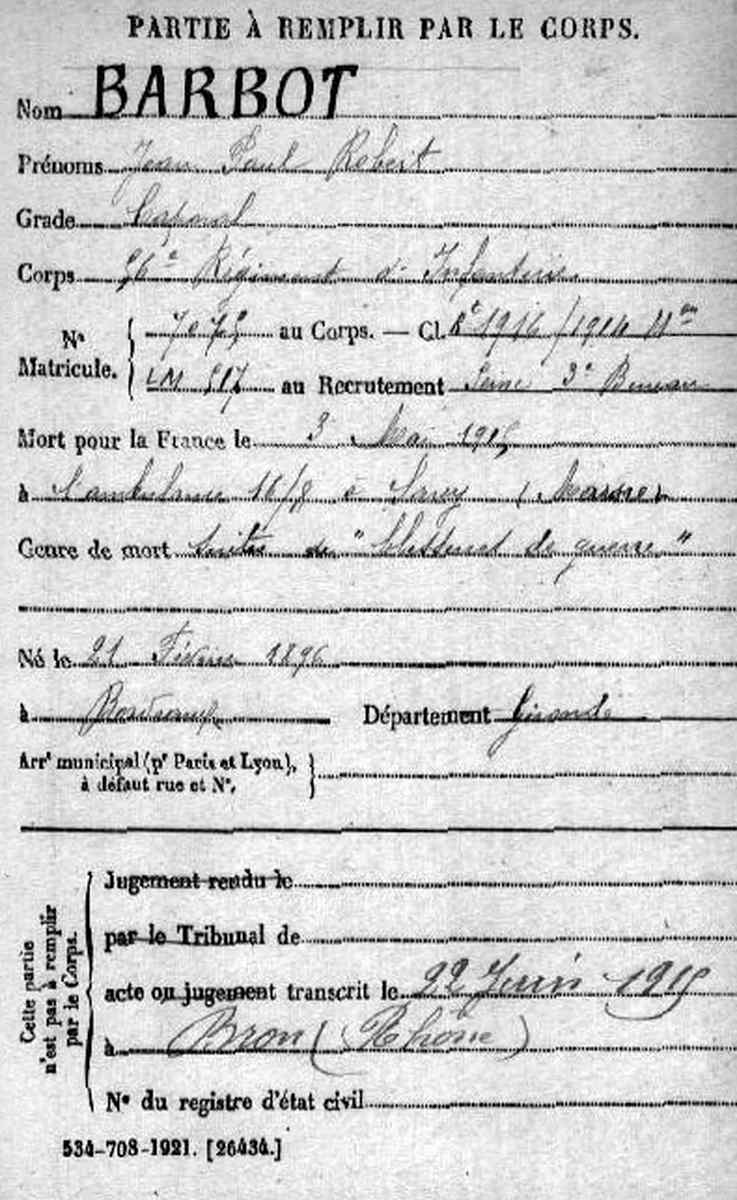 PARTIE À REMPLIR PAR LE CORPS.
Nom BARBOT
Prénoms Jean Paul Robert
Grade Caporal
Corps 56e Régiment d'Infanterie
Nº Matricule. 7075 au Corps. — Cl. 1916 / 1914
LM 517 au Recrutement Seine 3e Bureau
Mort pour la France le 3 Mai 1915
à l'ambulance 16/8 à (Marne)
Genre de mort Suites de "blessures de guerre"
Né le 21 Février 1896
à Bordeaux Département Gironde
Arrt municipal (pr Paris et Lyon), à défaut rue et Nº.
Cette partie n'est pas à remplir par le Corps.
Jugement rendu le
par le Tribunal de
acte ou jugement transcrit le 22 Juin 1915
à Bron (Rhône)
Nº du registre d'état civil
534-708-1921. [26434.]